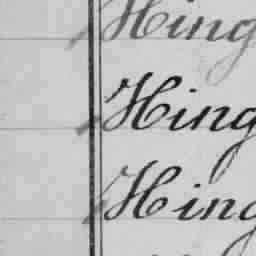 Hing
Hing
Hing